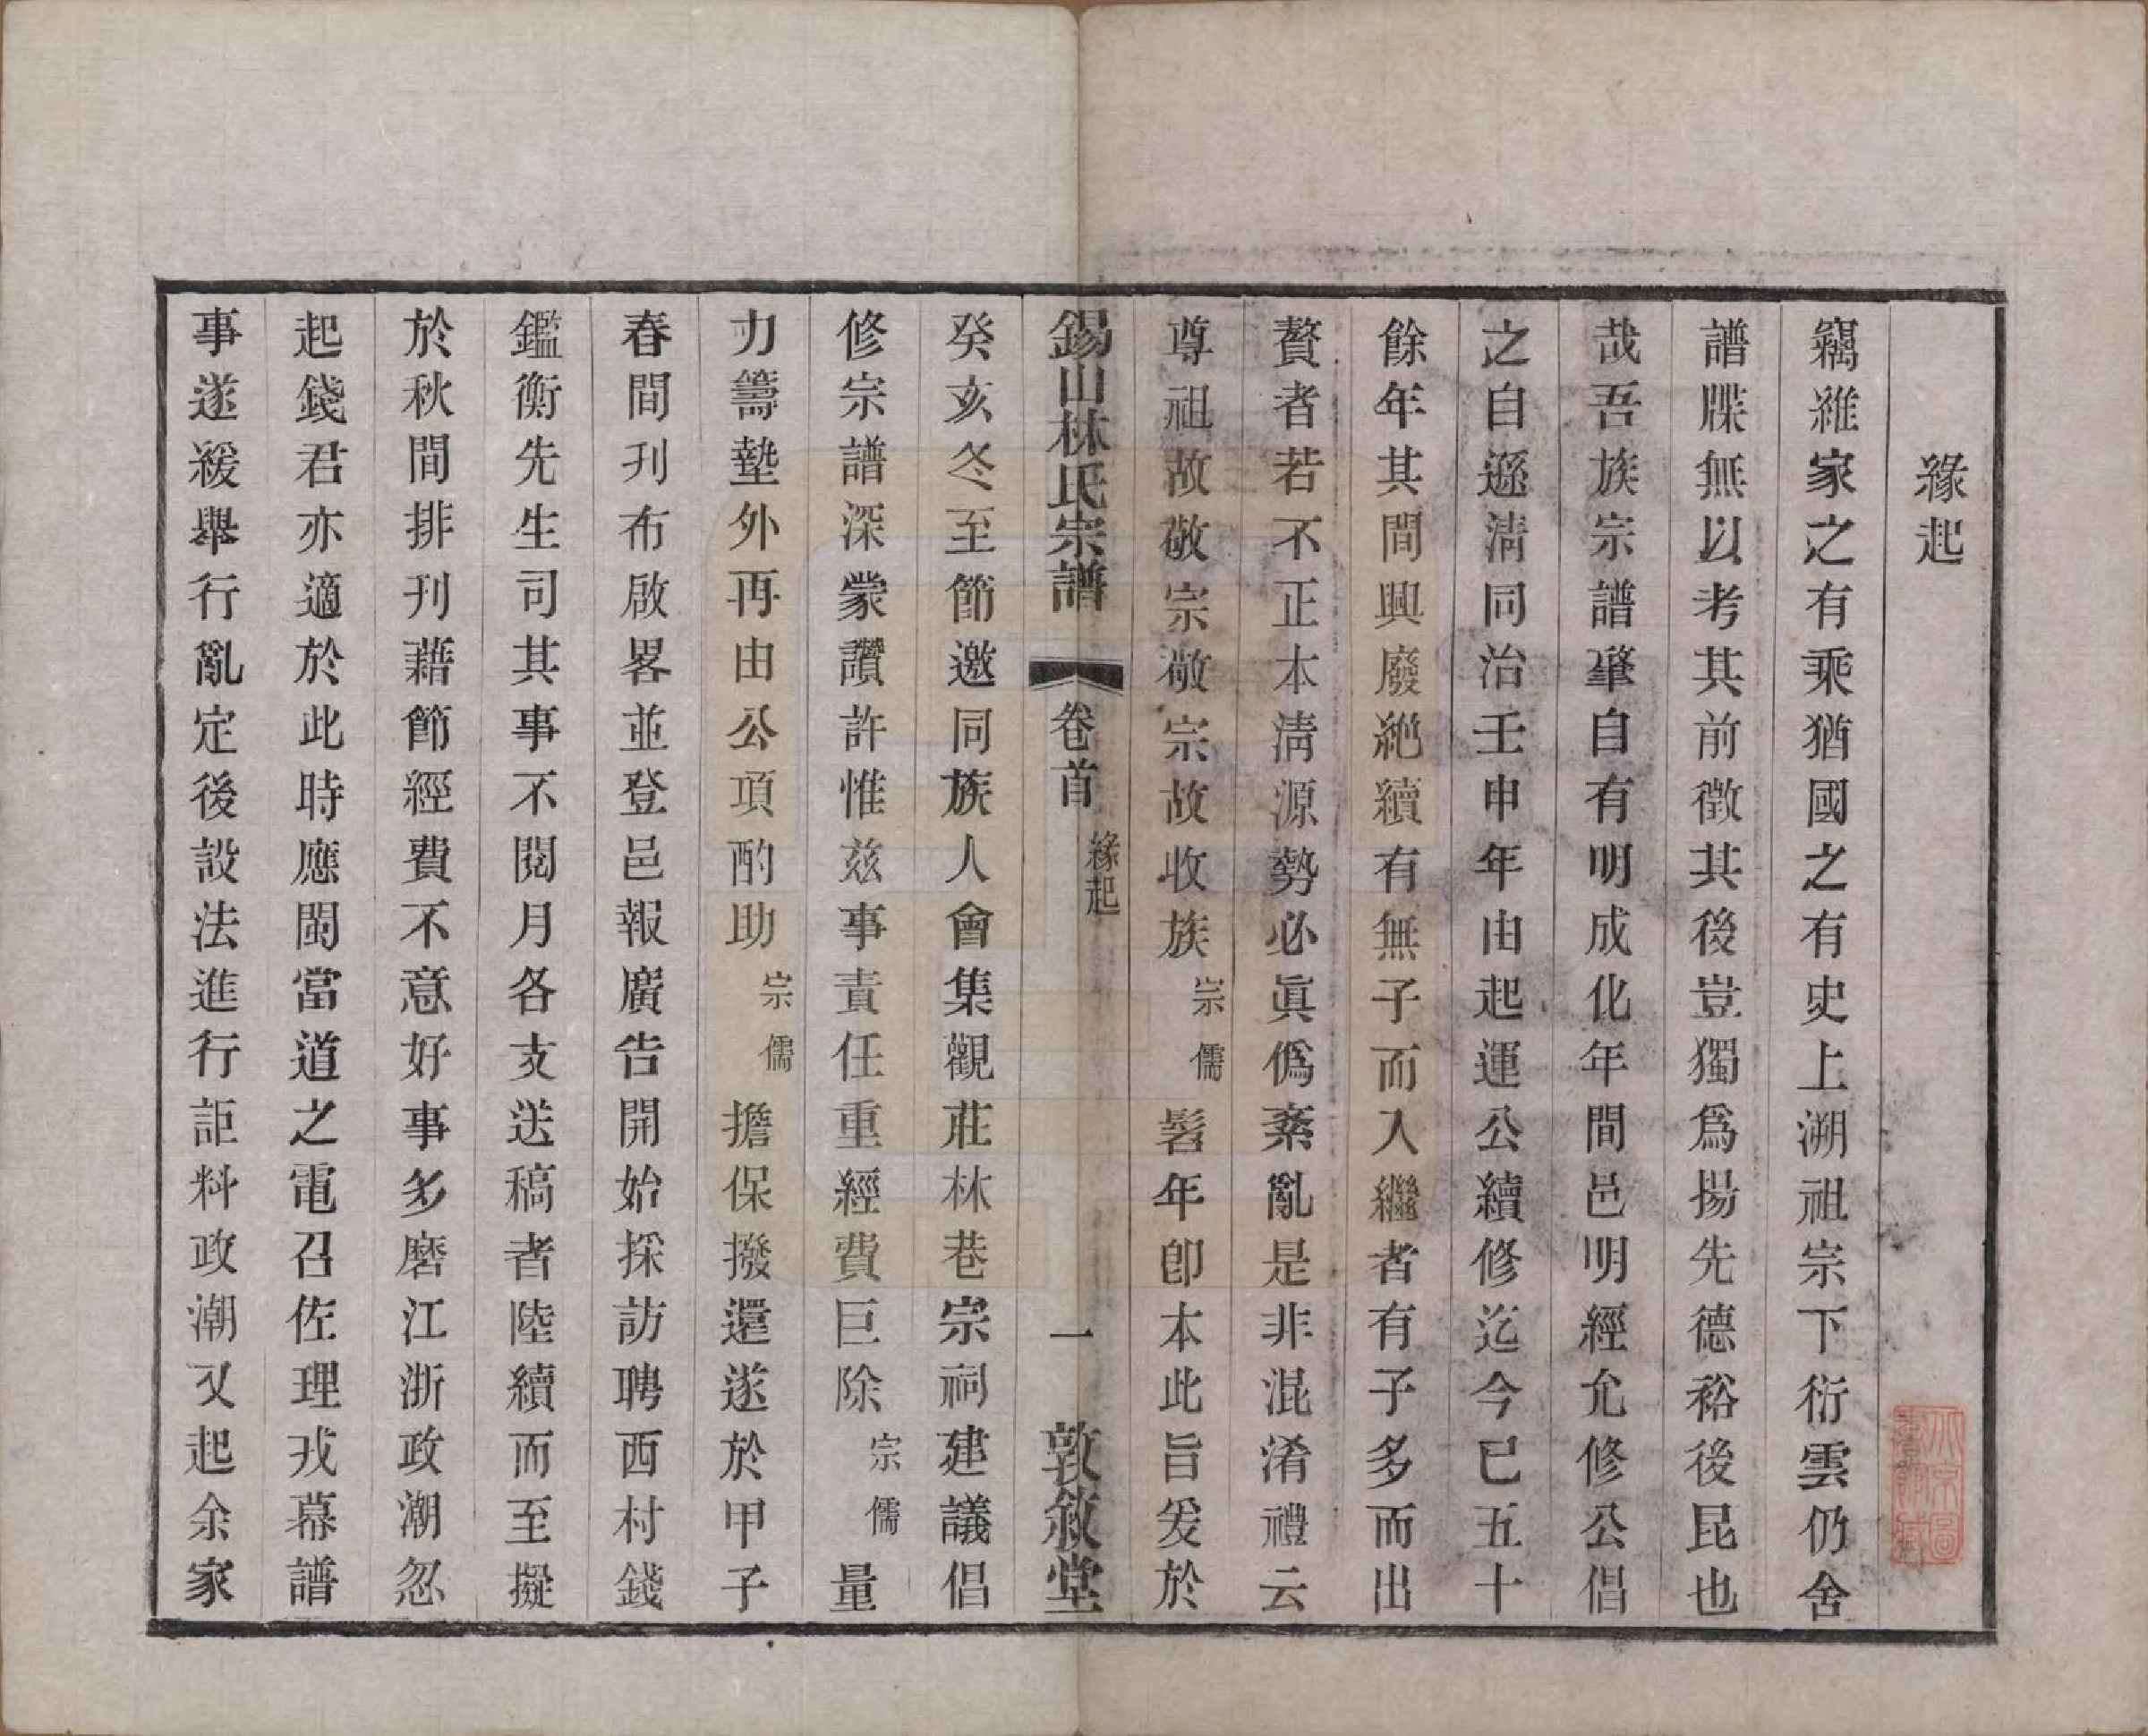 緣起
竊維家之有乘猶國之有史上溯祖宗下衍雲仍舍
譜牒無以考其前徵其後豈獨爲揚先德裕後昆也
哉吾族宗譜肇自有明成化年間邑明經允修公倡
之自遜淸同治壬申年由起運公續修迄今已五十
餘年其間興廢絶續有無子而入繼者有子多而出
贅者若不正本淸源勢必眞僞紊亂是非混淆禮云
尊祖故敬宗敬宗故收族宗儒髫年卽本此旨爰於
錫山林氏宗譜 卷首 緣起 一 敦敘堂
癸亥冬至節邀同族人會集觀莊林巷宗祠建議倡
修宗譜深蒙讚許惟茲事責任重經費巨除宗儒量
力籌墊外再由公項酌助宗儒擔保撥還遂於甲子
春間刋布啟畧並登邑報廣告開始採訪聘西村錢
鑑衡先生司其事不閱月各支送稿者陸續而至擬
於秋間排刋藉節經費不意好事多磨江浙政潮忽
起錢君亦適於此時應閩當道之電召佐理戎幕譜
事遂緩舉行亂定後設法進行詎料政潮又起余家